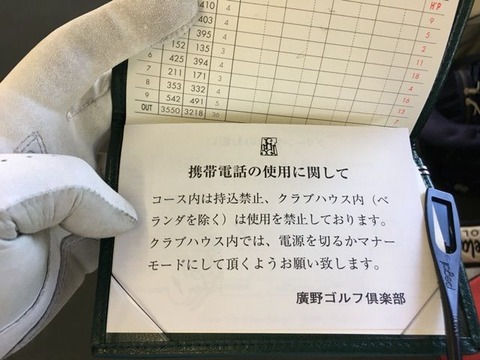 410
403
395
6 425 394
152 135
7 211 171
8 353 332
9 542 491
OUT 3550 3218 36
HP
9
5
2
11
3
15
7
17
13
携帯電話の使用に関して
コース内は持込禁止、クラブハウス内（ベ
ランダを除く）は使用を禁止しております。
クラブハウス内では、電源を切るかマナー
モードにして頂くようお願い致します。
廣野ゴルフ倶楽部